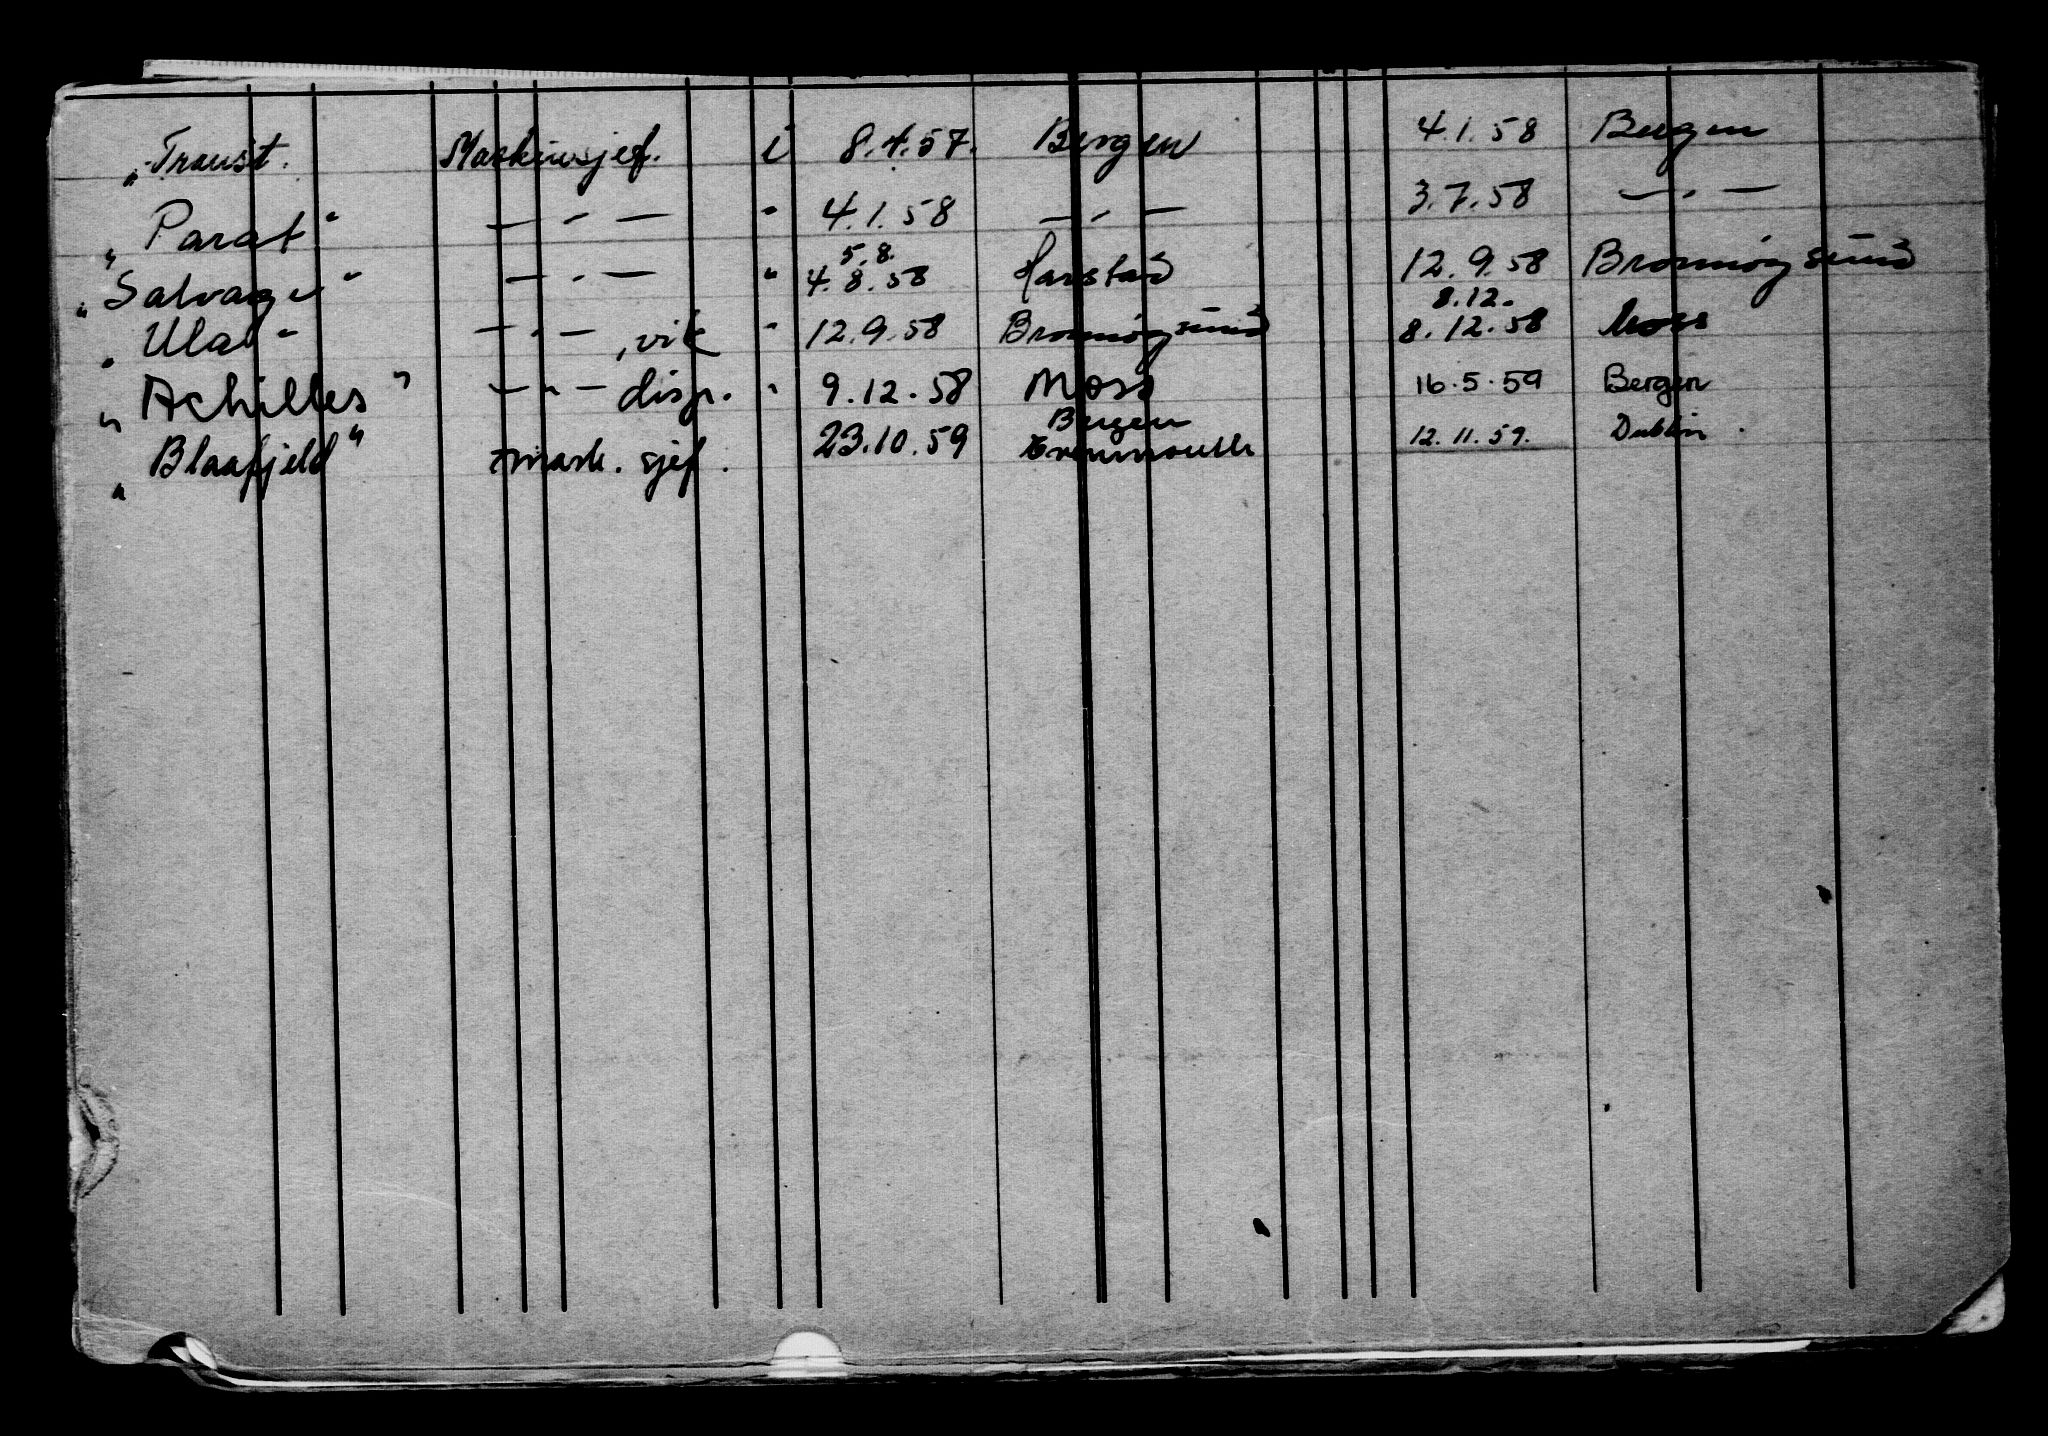 „Traust. Maskinsjef. i 8.4.57. Bergen 4.1.58 Bergen
„Parat" — " — " 4.1.58 — " — 3.7.58 — " —
5.8.
„Salvager" — " — " 4.8.58 Harstad 12.9.58 Brønnøysund
8.12.
„Ula" — " — , vik " 12.9.58 Brønnøysund 8.12.58 Moss
„Achilles" — " — disp. " 9.12.58 Moss 16.5.59 Bergen
Bergen
„Blaafjeld" mask. sjef. 23.10.59 12.11.59. Dublin.